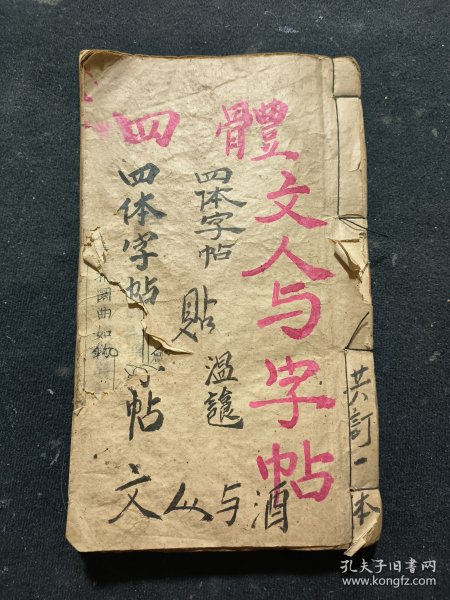 共訂一本
四體
文人与字帖
四体字帖
貼
温
四体字帖
字帖
曲如
文人与酒
孔夫子旧书网
www.kongfz.com